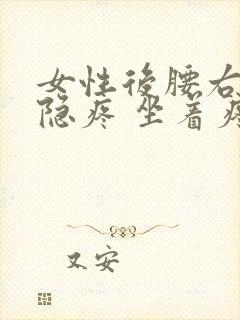 女性後腰右
隐疼 坐着疼
又安